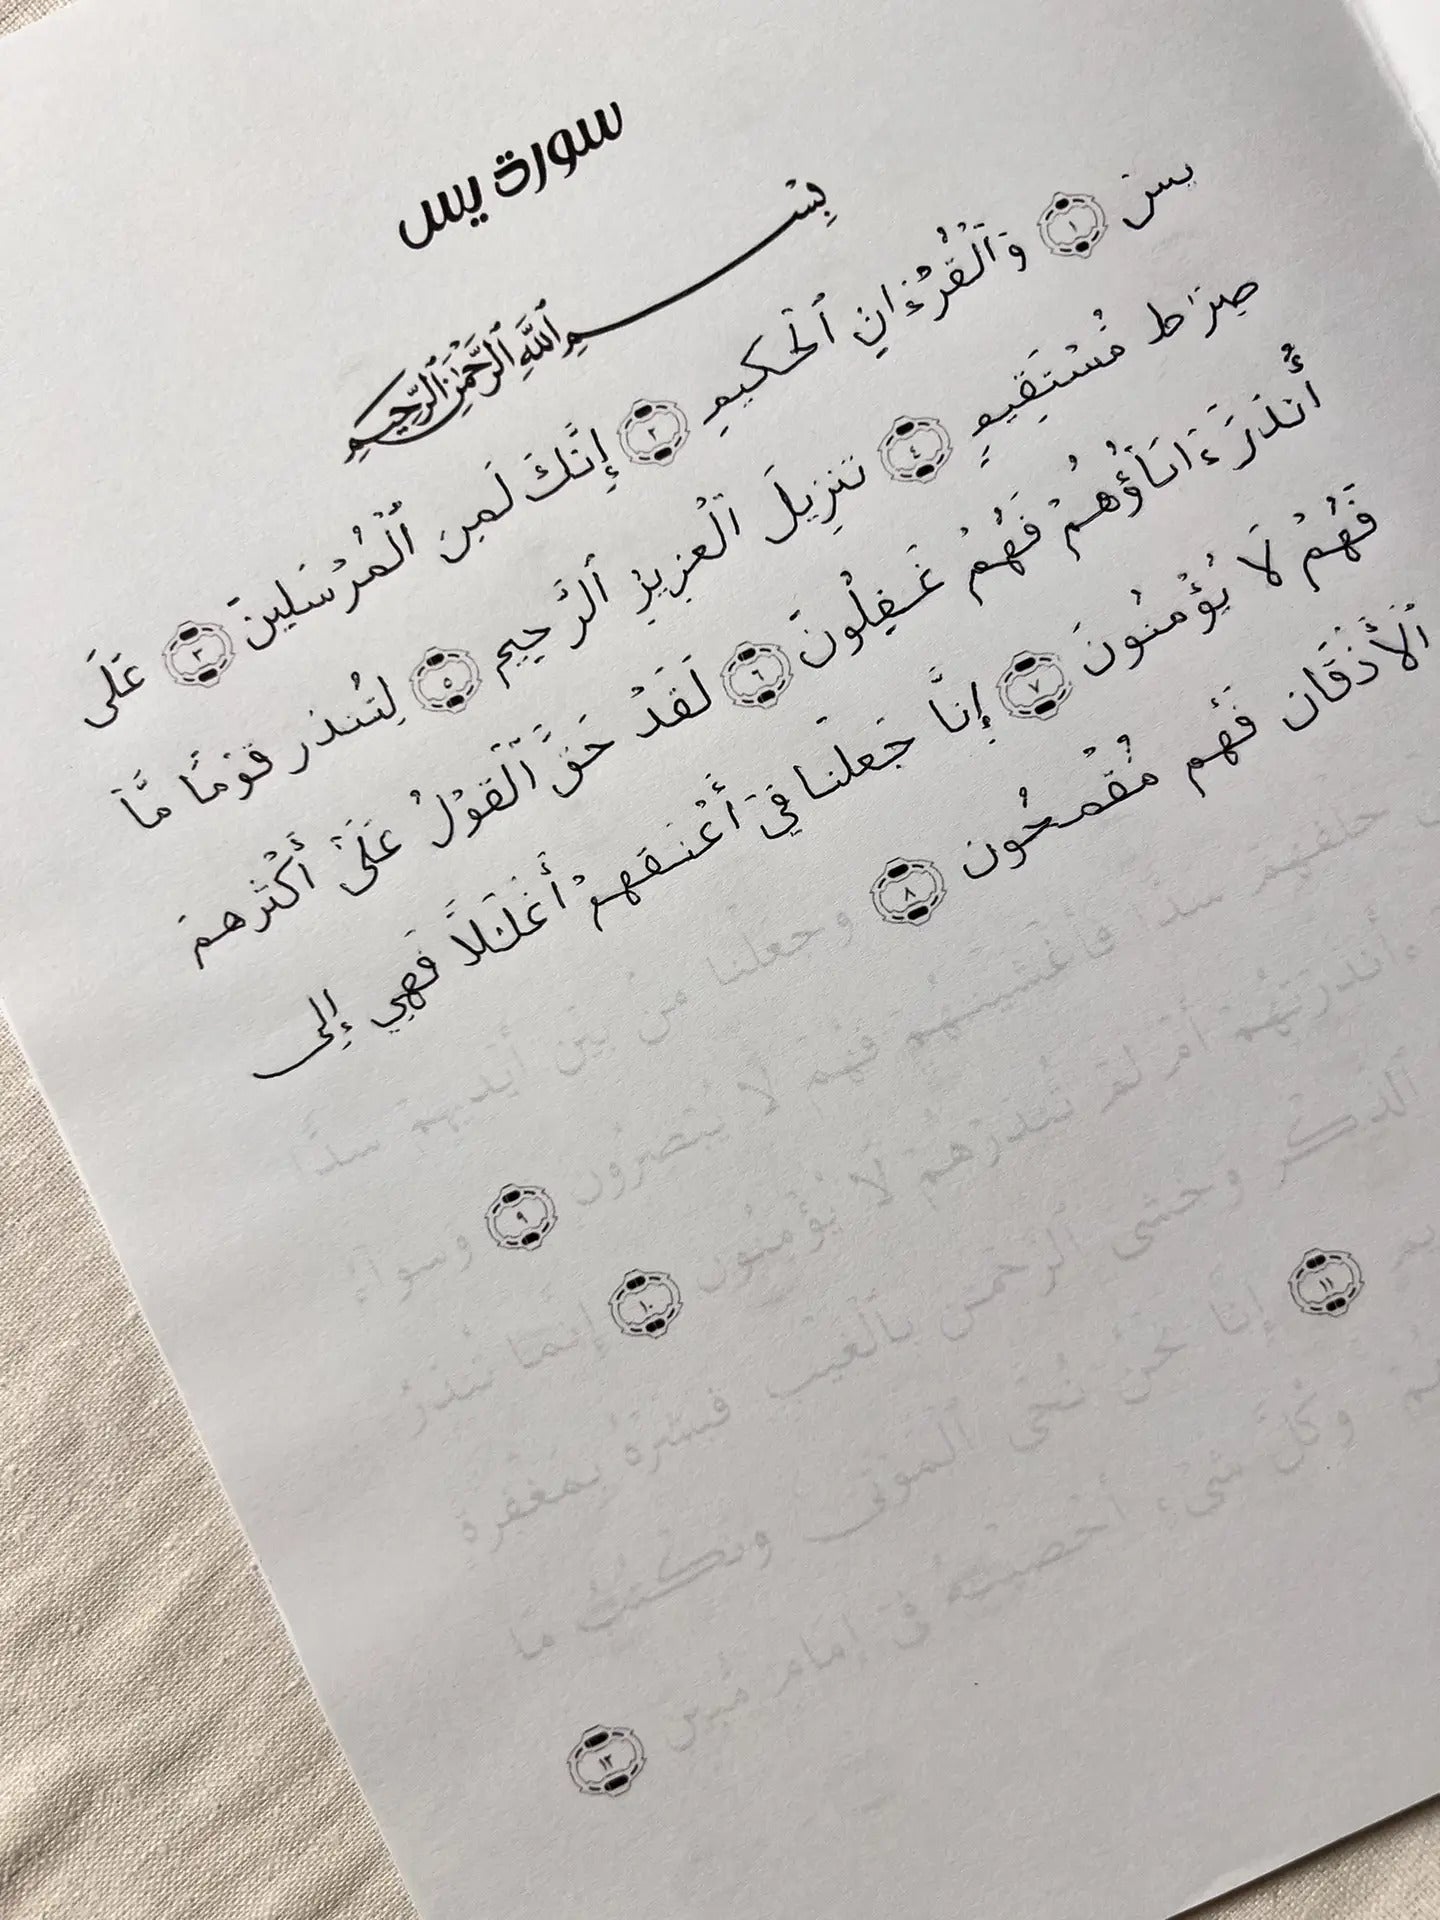 سورة يس
بِسْمِ ٱللَّهِ ٱلرَّحْمَٰنِ ٱلرَّحِيمِ
يسٓ ١ وَٱلْقُرْءَانِ ٱلْحَكِيمِ ٢ إِنَّكَ لَمِنَ ٱلْمُرْسَلِينَ ٣ عَلَى
صِرَاط مُسْتَقِيمٍ ٤ تَنزِيلَ ٱلْعَزِيزِ ٱلرَّحِيمِ ٥ لِتُنذر قَوْمًا مَّآ
أُنذَرَ ءَابَآؤُهُمْ فَهُمْ غَـفِلُونَ ٦ لَقَدْ حَقَّ ٱلْقَوْلُ عَلَىٰٓ أَكْثَرِهمْ
فَهُمْ لَا يُؤْمِنُونَ ٧ إِنَّا جَعَلْنَا فِيٓ أَعْنَـقهِمْ أَغْلَـٰلًا فَهِي إِلى
ٱلْأَذْقَان فَهُم مُقْمَحُون ٨ وجعلنا منْ بَيْن أيديهمْ سدًّا
خلفهمْ سدًّا فأغْشينـهُمْ فهُمْ لا يُبْصرون ٩ وسوآءٌ
ءأنذرْتهُمْ أمْ لمْ تُنذرْهُمْ لا يُؤْمنُون ١٠ إنّما تُنذرُ
ٱلذّكْر وخشى ٱلرّحْمن بٱلْغيْب فبشّرْهُ بمغْفرةٍ
١١ إنّا نحْنُ نُحْي ٱلْموْتى ونكْتُبُ ما
وكُلّ شيْءٍ أحْصيْنـهُ فى إمام مُبين ١٢